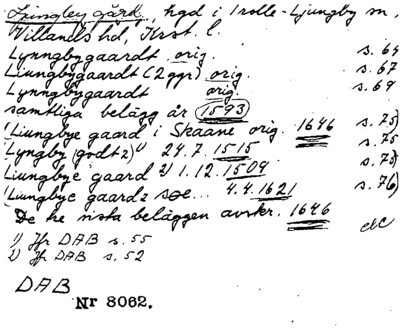 Ljungby gård, hgd i Trolle-Ljungby sn,
Villands hd, Krst. l.
Lynngbygaardt orig. s. 64
Liungbygaardt (2 ggr) orig. s. 67
Lynngbygaardt orig. s. 69
samtliga belägg år 1593
(Liungbye gaard i Skaane orig. 1646 s. 75)
(Lyngby (godtz)¹⁾ 24.7.1515 s. 75
Liungbye gaard ²⁾ 1.12.1509 s. 75)
(Liungbye gaardz soe... 4.4.1621 s. 76)
De tre sista beläggen avskr. 1646
1) Jfr DAB s. 55
2) Jfr DAB s. 52
DAB
Nr 8062.